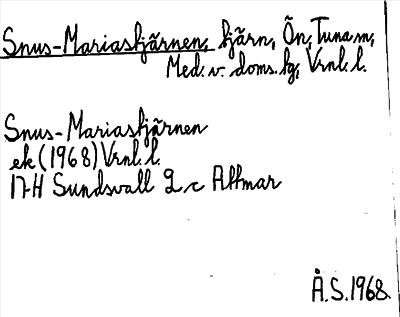 Snus-Mariastjärnen, tjärn, Ön, Tuna sn,
Med. v. doms. hg, Vrnl. l.
Snus-Mariastjärnen
ek (1968) Vrnl. l.
17H Sundsvall 2 c Allmar
Å.S. 1968.